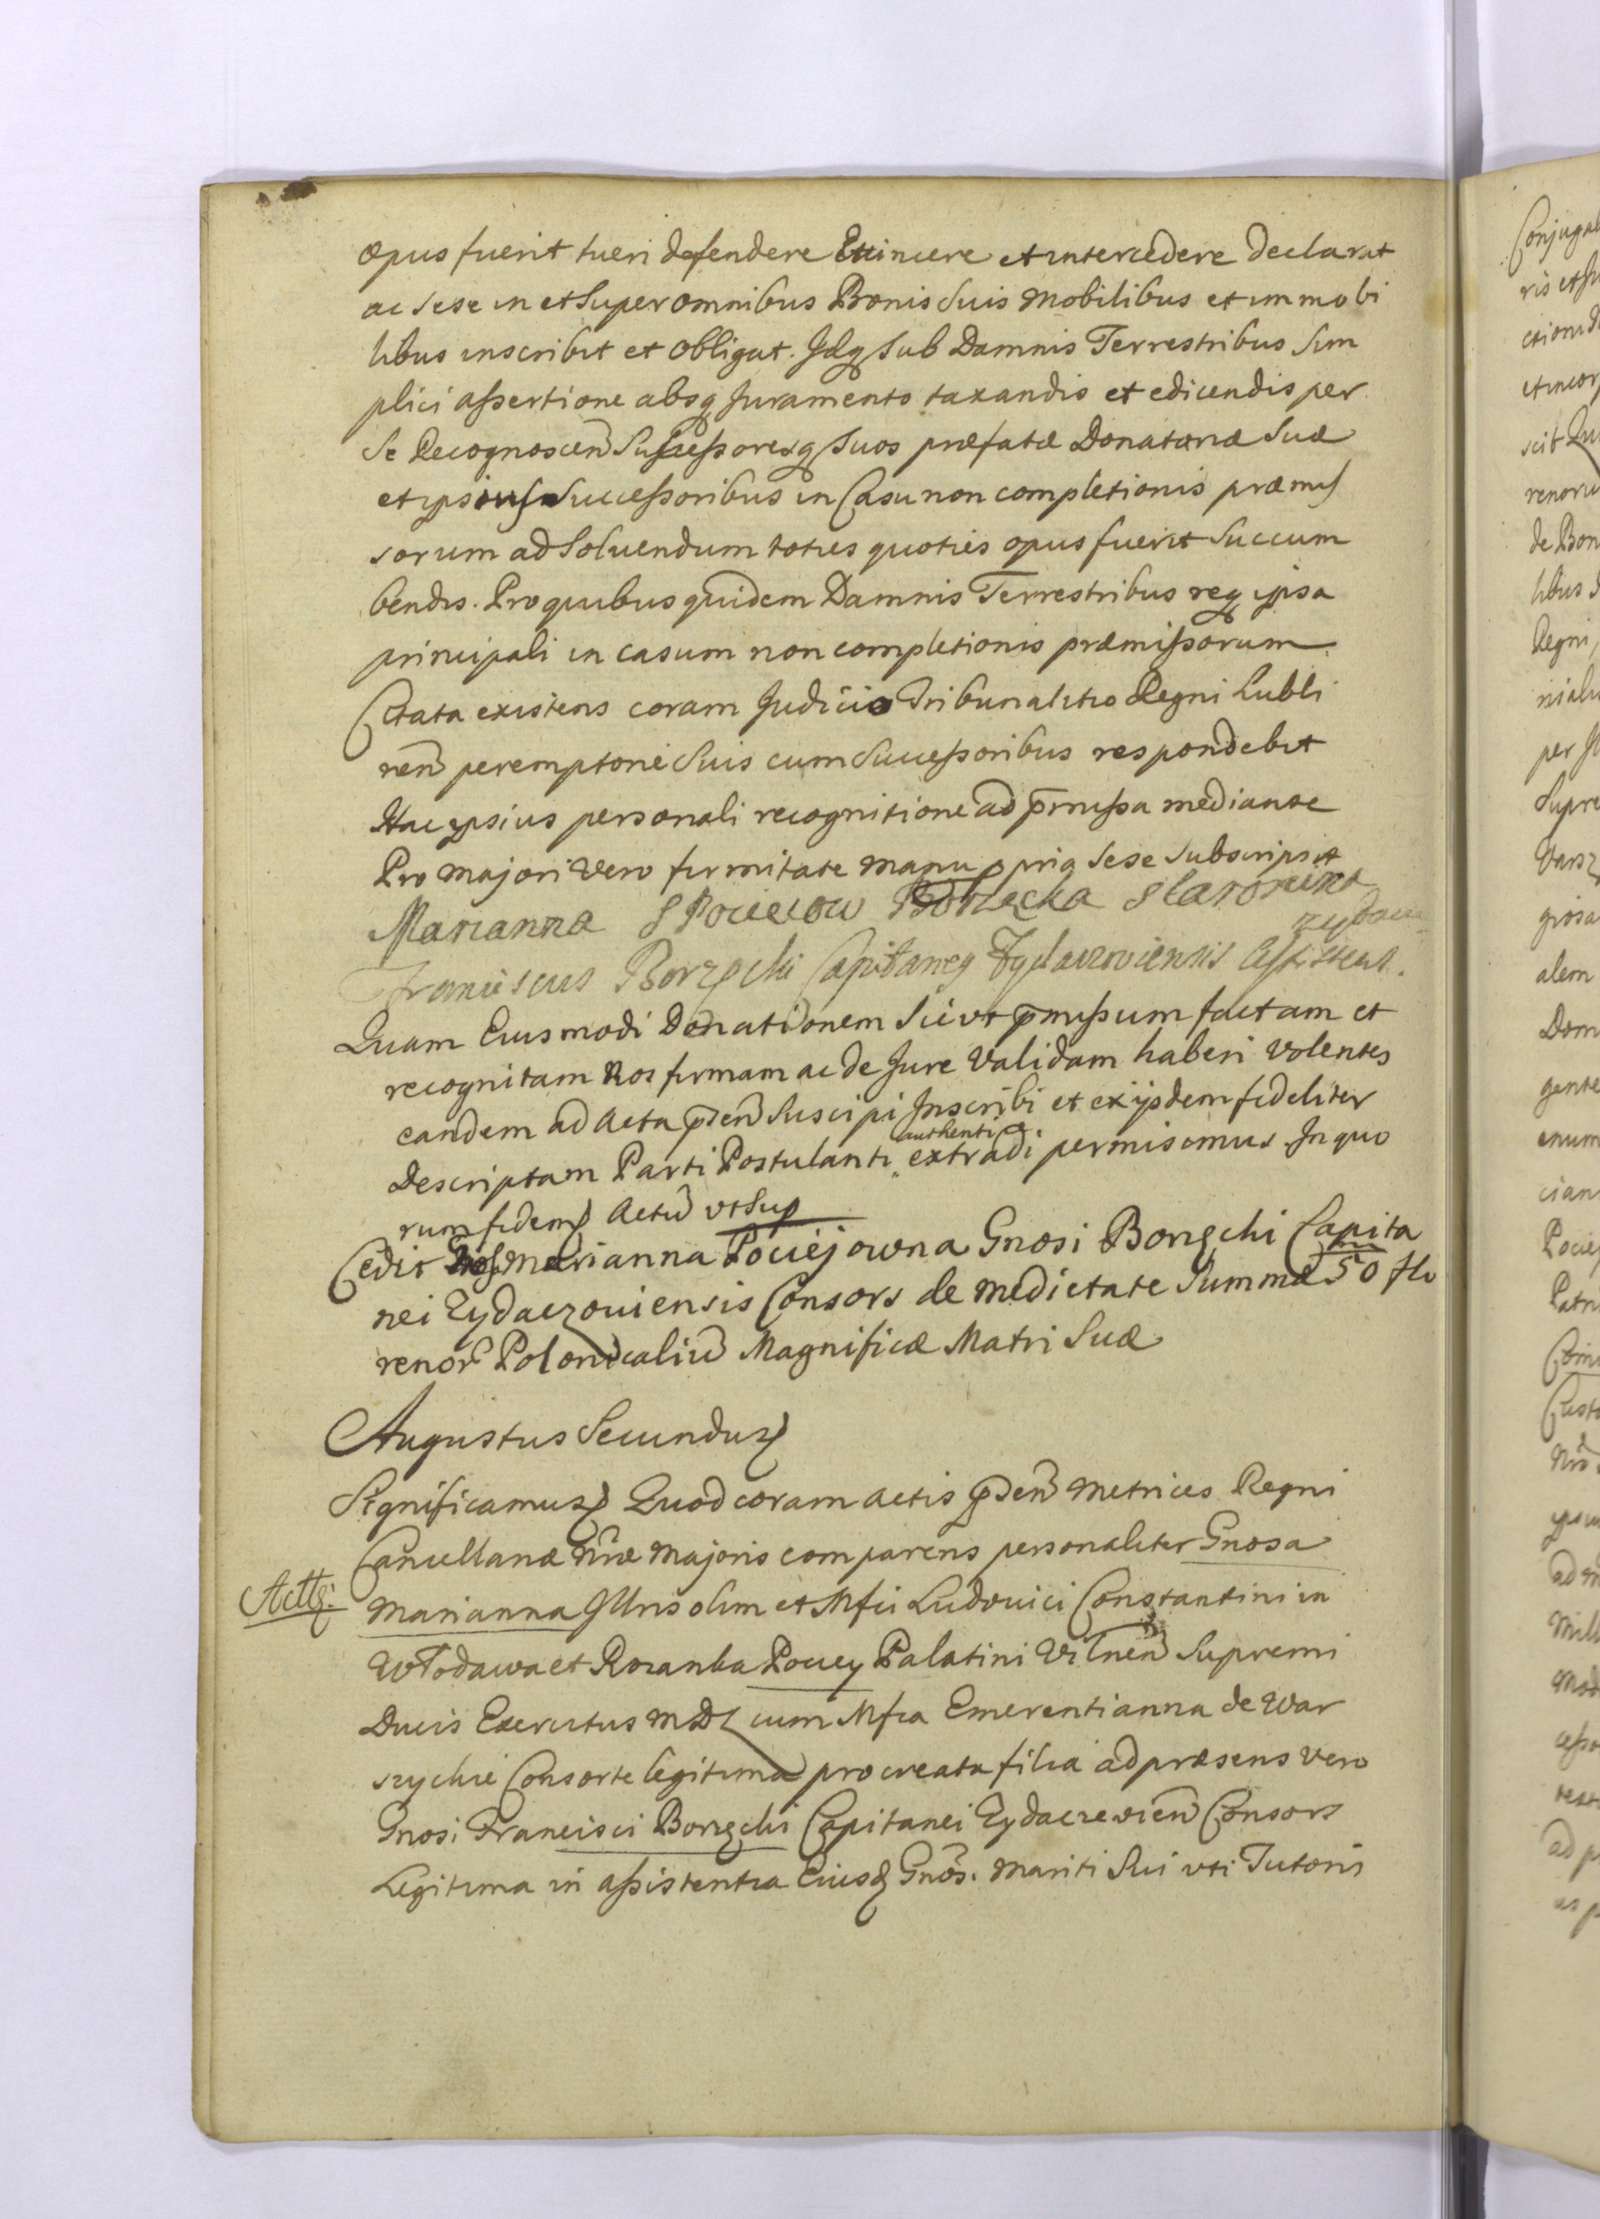 opus fuerit tueri defendere Evincere et intercedere declarat
ac sese in et Super omnibus Bonis Suis Mobilibus et immobi
libus inscribit et obligat. Idq Sub Damnis Terrestribus Sim
plici assertione absq Juramento taxandis et edicendis per
Se Recognoscen Successoresq Suos præfatæ Donatariæ Suæ
et ipsius Successoribus in Casu non completionis præmis
sorum ad Solvendum toties quoties opus fuerit Succum
bendis. Pro quibus quidem Damnis Terrestribus req ipsa
principali in casum non completionis præmissorum
Citata existens coram Judicio Tribunalitio Regni Lubli
nen peremptorie Suis cum Successoribus respondebit
Hac ipsius personali recognitione ad prmissa mediante
Pro majori vero firmitate manu ppria Sese Subscripsit
Marianna S Pociejow Borzęcka starościna
zydacz
Franciscus Borzęcki Capitaneq Zydaczoviensis Assistens.
Quam Eiusmodi Donationem Sicut pmissum factam et
recognitam Nos firmam ac de Jure Validam haberi Volentes
eandem ad Acta psen Suscipi Inscribi et ex ijsdem fideliter
Descriptam Parti Postulanti authentice extradi permisimus. In quo
rum fidem Actu ut Sup
Cedit Marianna Pociejowna Gnosi Borzęcki Capita
nei Zydaczoviensis Consors de medietate Summæ 50 m flo
renor Polonicaliu Magnificæ Matri Suæ
Augustus Secundus
Significamus Quod coram Actis psen Metrices Regni
Cancellariæ Nræ Majoris comparens personaliter Gnosa
Marianna Illris olim et Mfci Ludovici Constantini in
Włodawa et Rozanka Pociey Palatini Vilnen Supremi
Ducis Exercitus MDL cum Mfca Emerentianna de War
szyckie Consorte legitima procreata filia ad præsens vero
Gnosi Francisci Borzęcki Capitanei Zydaczevien Consors
Legitima in assistentia Eiusd Gnos. Mariti Sui uti Tutoris